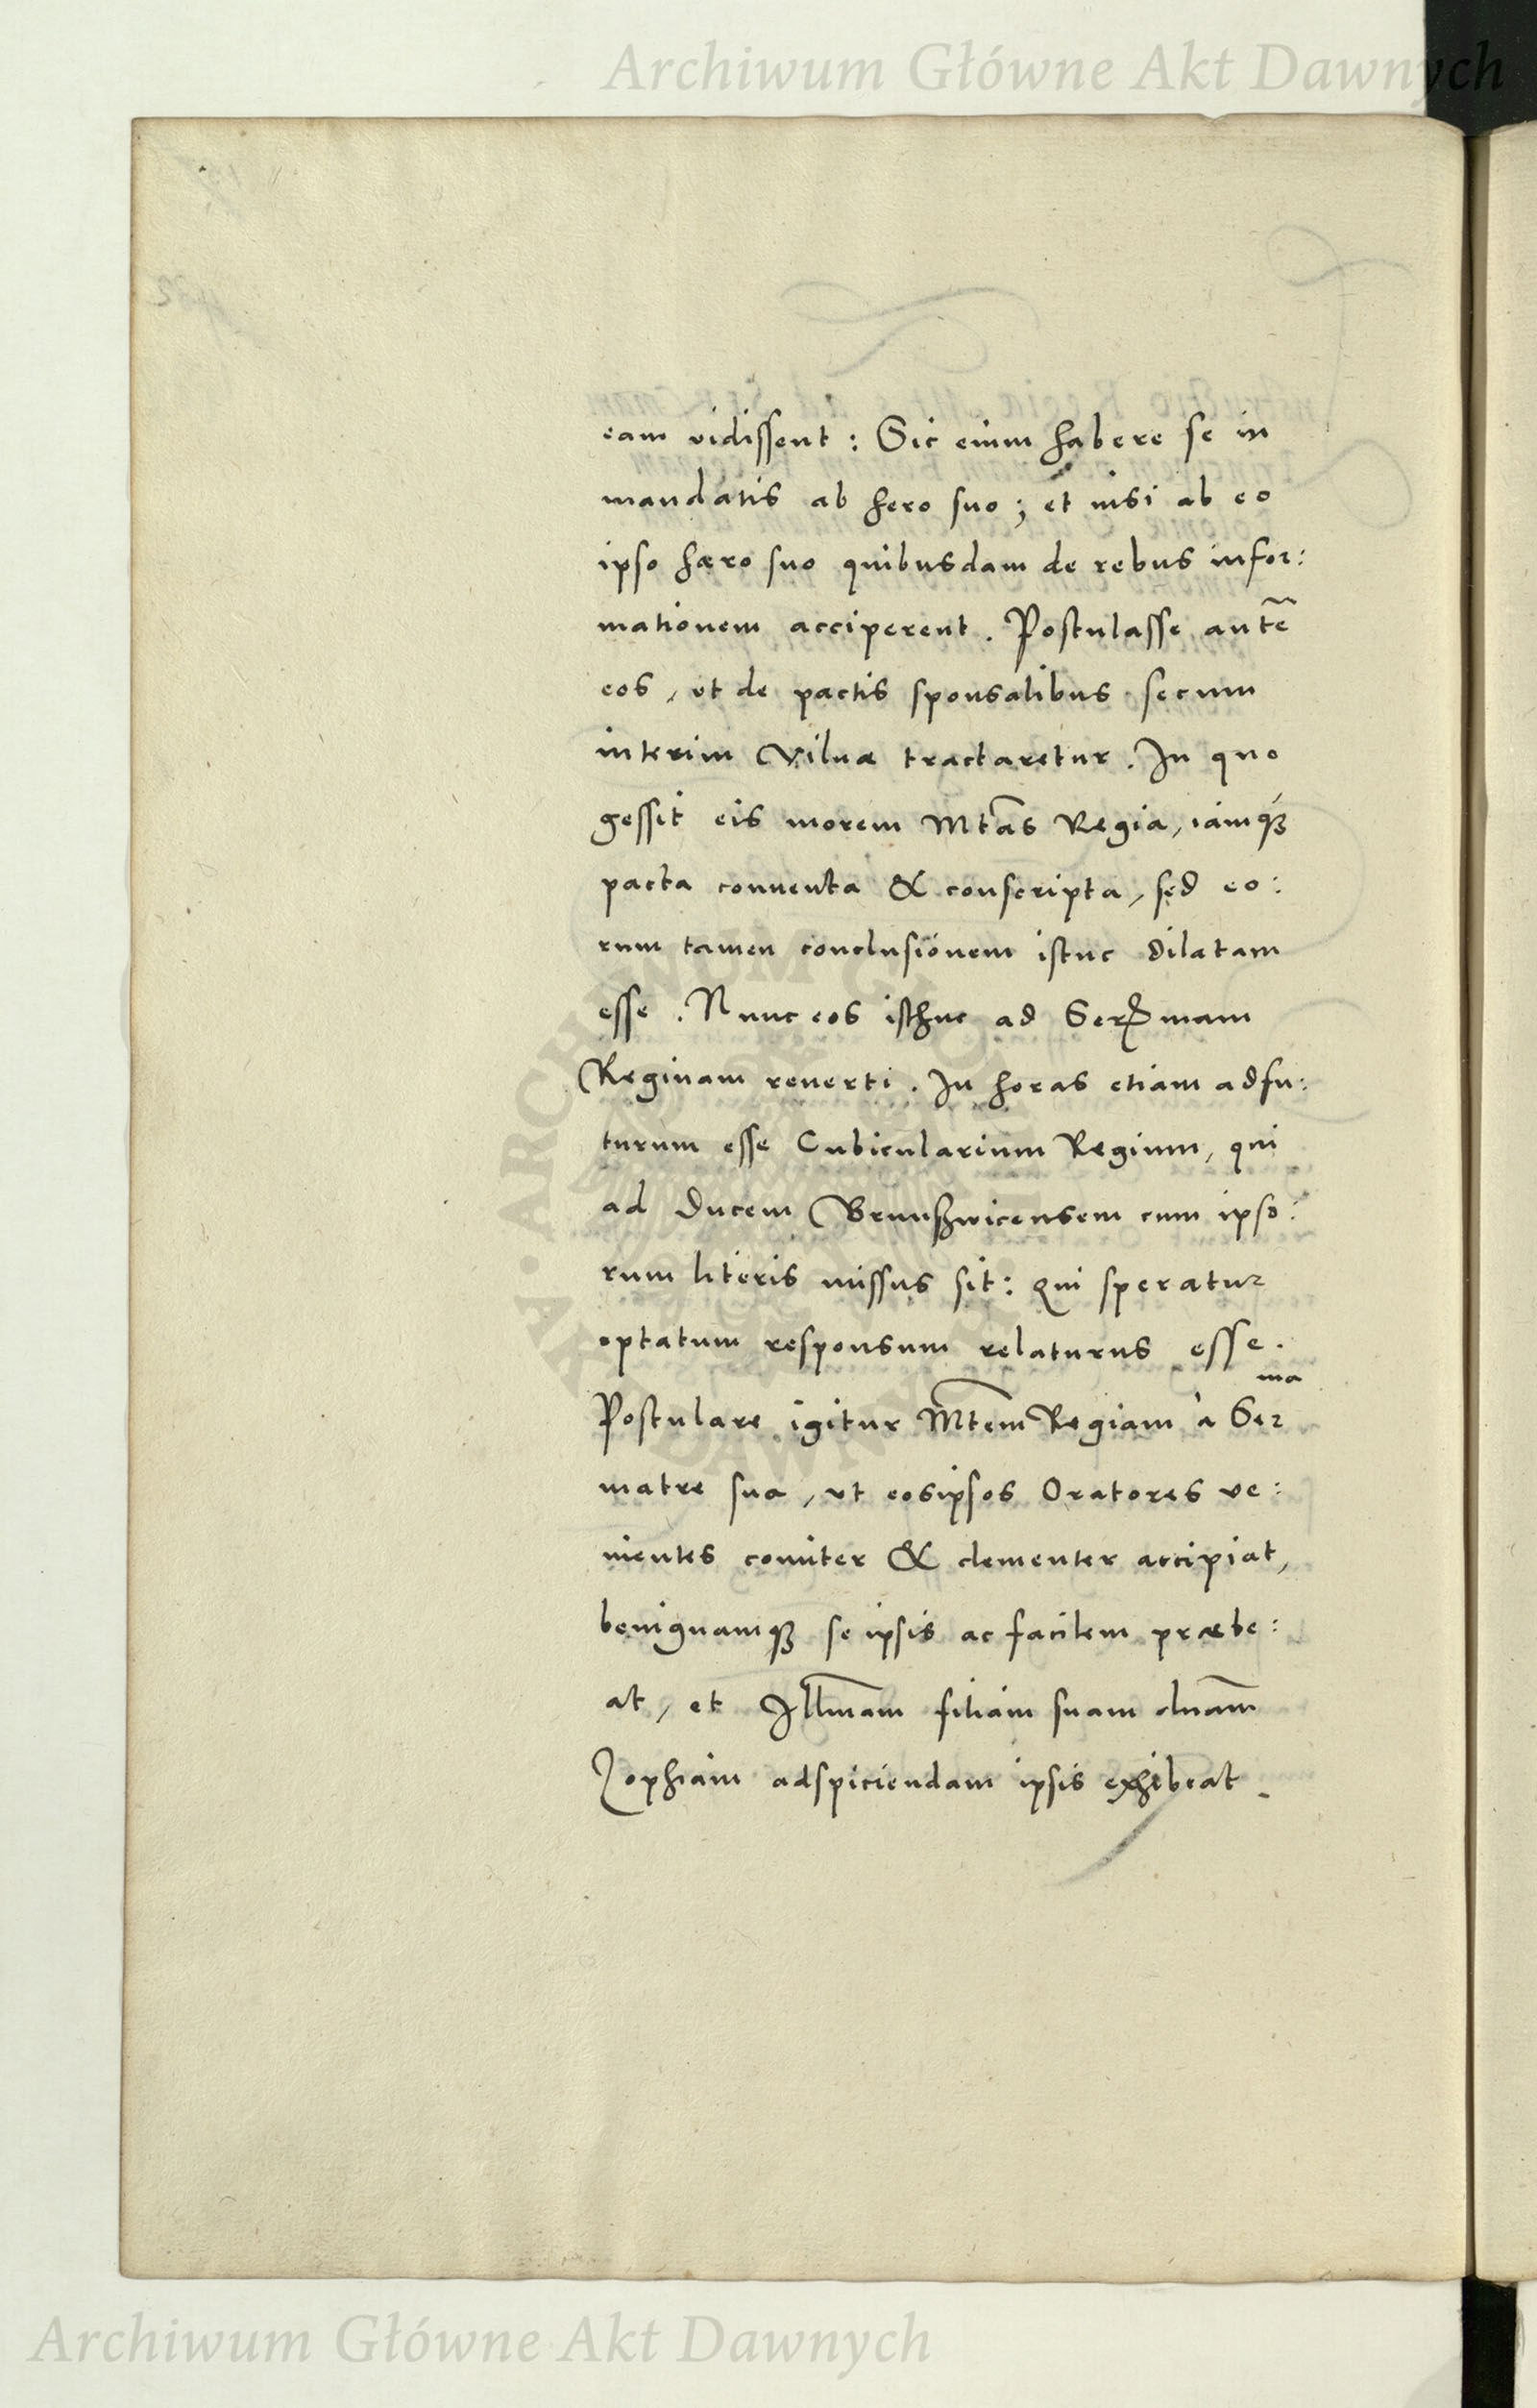 Archiwum Główne Akt Dawnych
eam vidissent : Sic enim habere se in
mandatis ab hero suo ; et nisi ab eo
ipso hæro suo quibusdam de rebus infor:
mationem acciperent . Postulasse autẽ
eos , ut de pactis sponsalibus secum
interim Vilnæ tractaretur . In quo
gessit eis morem Mtas Regia , iamqȝ
pacta conventa & conscripta , sed eo:
rum tamen conclusionem istuc dilatam
esse . Nunc eos isthuc ad Sermam
Reginam reverti . In horas etiam adfu:
turum esse Cubicularium Regium , qui
ad Ducem Brunßvicensem cum ipso:
rum literis missus sit : Qui speratur
optatum responsum relaturus esse .
Postulare igitur Mtem Regiam à Serma
matre sua , ut eosipsos Oratores ve:
nientes comiter & clementer accipiat ,
benignamqȝ se ipsis ac facilem præbe:
at , et Illmam filiam suam dnam
Zophiam adspiciendam ipsis exhibeat .
Archiwum Główne Akt Dawnych